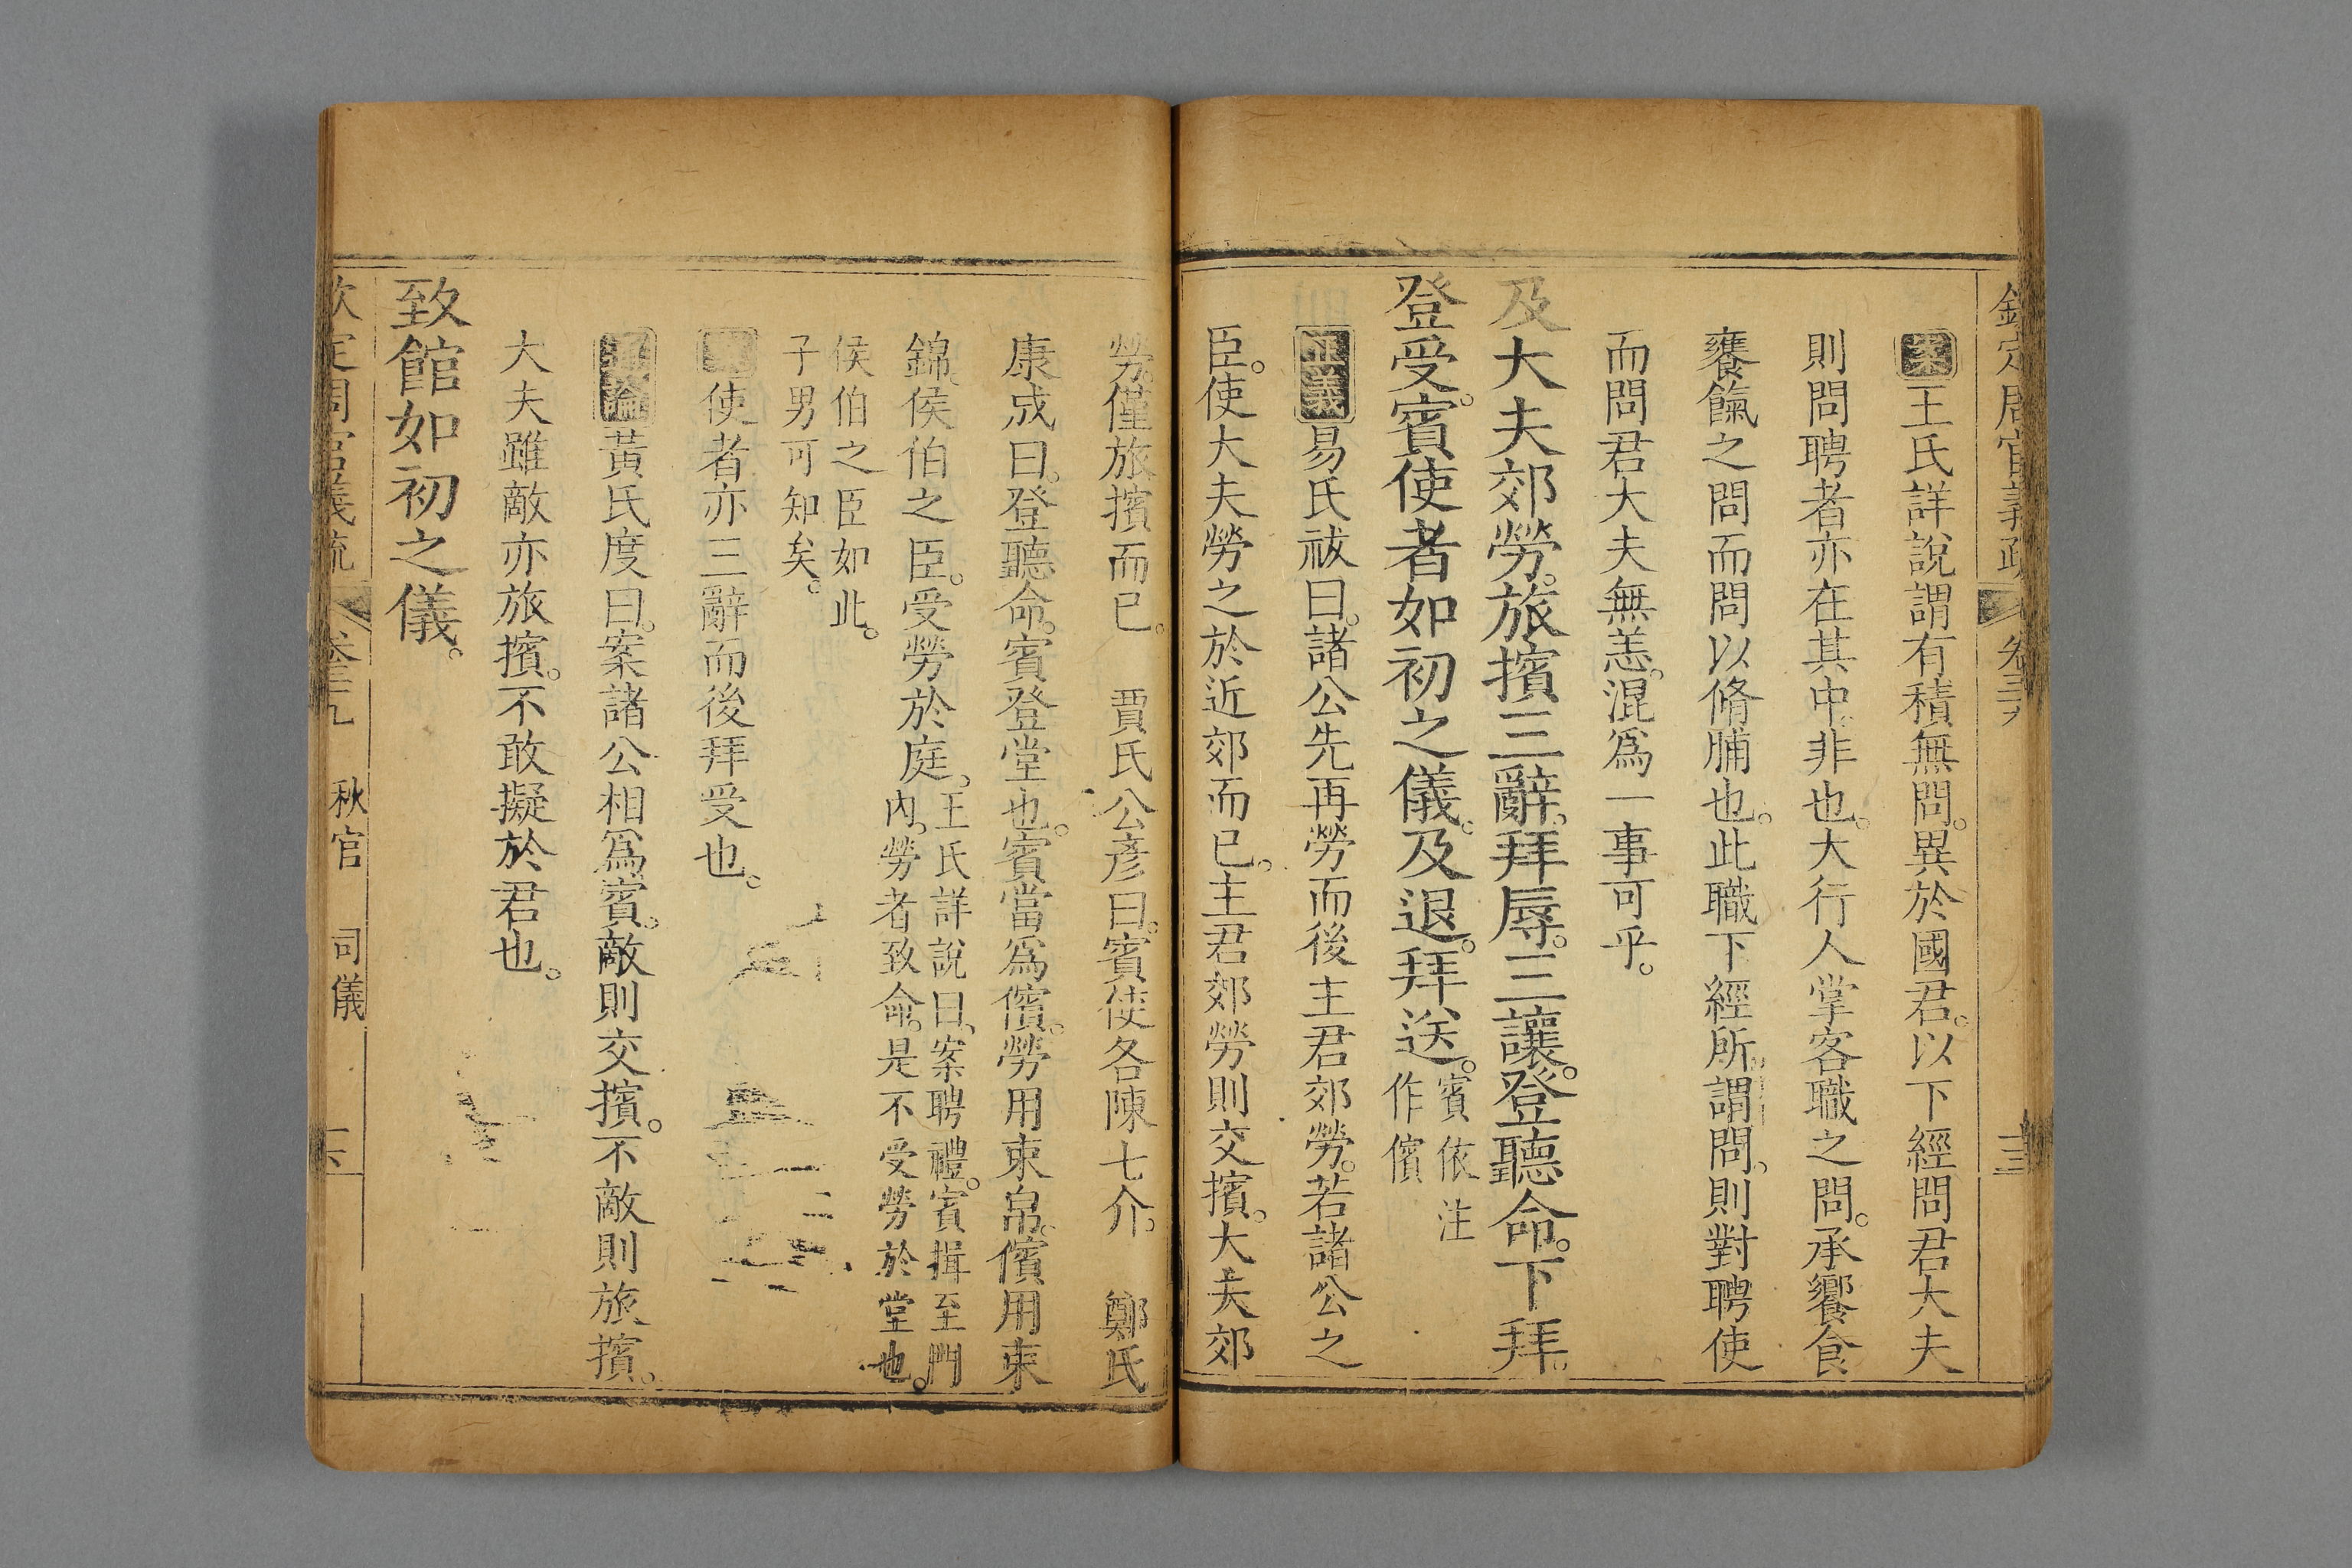 欽定周官義疏 卷三九
案王氏詳說謂有積無問。異於國君。以下經問君大夫
則問聘者亦在其中。非也。大行人掌客職之問。承饗食
饔餼之問而問以脩脯也。此職下經所謂問。則對聘使
而問君大夫無恙。混爲一事可乎。
及大夫郊勞。旅擯三辭。拜辱。三讓。登聽命。下拜。
登受。賓使者如初之儀。及退。拜送。賓依注
作儐
正義易氏祓曰。諸公先再勞而後主君郊勞。若諸公之
臣。使大夫勞之於近郊而已。主君郊勞則交擯。大夫郊
勞。僅旅擯而已。 賈氏公彥曰。賓使各陳七介。 鄭氏
康成曰。登聽命。賓登堂也。賓當爲儐。勞用束帛。儐用束
錦。侯伯之臣。受勞於庭。王氏詳說曰。案聘禮。賓揖至門
內。勞者致命。是不受勞於堂也。
侯伯之臣如此。
子男可知矣。
案使者亦三辭而後拜受也。
通論黃氏度曰。案諸公相爲賓。敵則交擯。不敵則旅擯。
大夫雖敵亦旅擯。不敢擬於君也。
致館如初之儀。
欽定周官義疏 卷三九 秋官 司儀